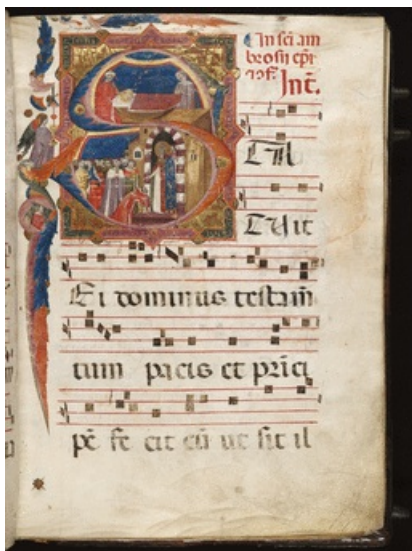 In sc̄i am
brosii ep̄i
Int̄.
S TA
TU it
Ei dominus testam̄
tum pacis et prīci
pē fe cit eū ut sit il